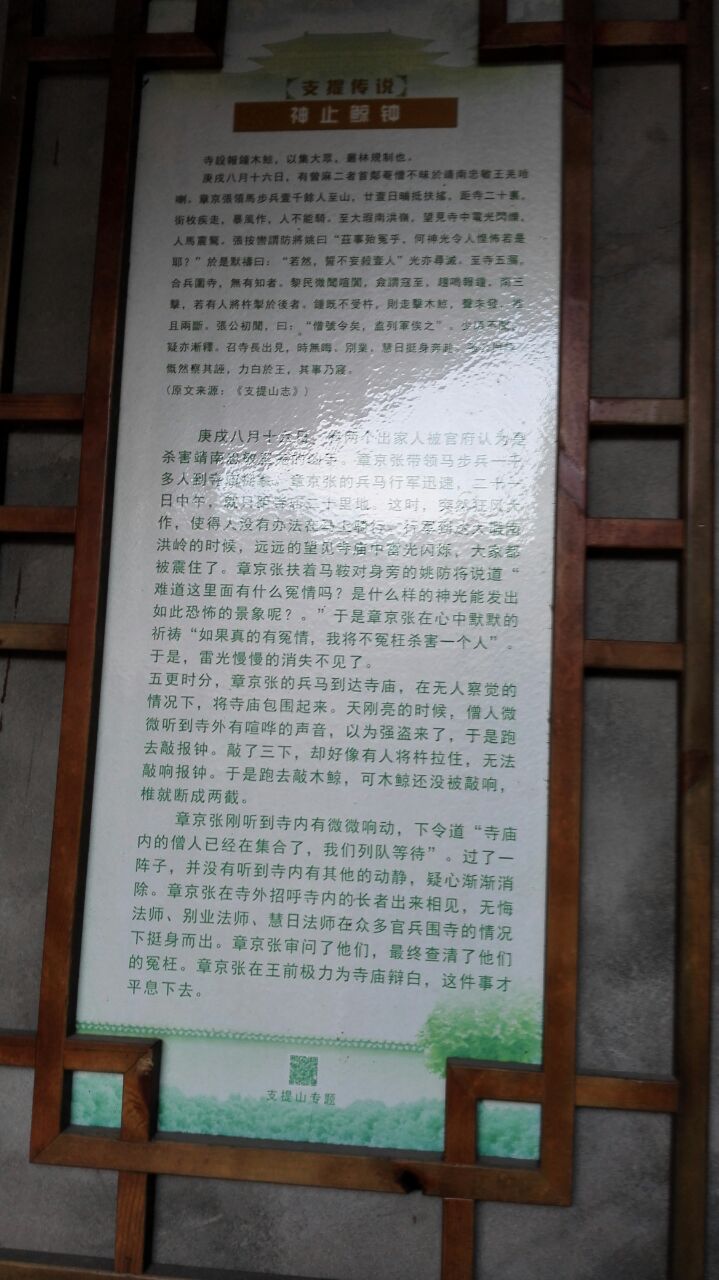 【支提传说】
神止鲸钟
寺設報鐘木鯨，以集大眾，叢林規制也。
庚戌八月十六日，有曾麻二者首鄰菴僧不昧於靖南忠敬王羌哈
喇。章京張領馬步兵壹千餘人至山，廿壹日晡抵扶搖，距寺二十裏，
銜枚疾走，暴風作，人不能騎。至大瑕南洪嶺，望見寺中電光閃爍，
人馬震駕。張按轡謂防將姚曰“茲事殆冤乎，何神光令人惶怖若是
耶？”於是默禱曰：“若然，誓不妄殺壹人”光亦尋滅。至寺五漏，
合兵圍寺，無有知者。黎民微聞喧闐，僉謂寇至，趨鳴報鐘，甫三
擊，若有人將杵掣於後者。鐘既不受杵，則走擊木鯨，聲未發，
且兩斷。張公初聞，曰：“僧號令矣，盍列軍俟之”。少
疑亦漸釋。召寺長出見，時無晦、別業、慧日挺身奔赴。
慨然察其誣，力白於王，其事乃寢。
（原文来源：《支提山志》）
庚戌八月十六日，有两个出家人被官府认为是
杀害靖南忠敬的凶手。章京张带领马步兵一千
多人到寺庙。章京张的兵马行军迅速，二十一
日中午，就只距寺庙二十里地。这时，突然狂风大
作，使得人没有办法在马上骑行。行军到达大
洪岭的时候，远远的望见寺庙中雷光闪烁，大家都
被震住了。章京张扶着马鞍对身旁的姚防将说道“
难道这里面有什么冤情吗？是什么样的神光能发出
如此恐怖的景象呢？。”于是章京张在心中默默的
祈祷“如果真的有冤情，我将不冤枉杀害一个人”。
于是，雷光慢慢的消失不见了。
五更时分，章京张的兵马到达寺庙，在无人察觉的
情况下，将寺庙包围起来。天刚亮的时候，僧人微
微听到寺外有喧哗的声音，以为强盗来了，于是跑
去敲报钟。敲了三下，却好像有人将杵拉住，无法
敲响报钟。于是跑去敲木鲸，可木鲸还没被敲响，
椎就断成两截。
章京张刚听到寺内有微微响动，下令道“寺庙
内的僧人已经在集合了，我们列队等待”。过了一
阵子，并没有听到寺内有其他的动静，疑心渐渐消
除。章京张在寺外招呼寺内的长者出来相见，无悔
法师、别业法师、慧日法师在众多官兵围寺的情况
下挺身而出。章京张审问了他们，最终查清了他们
的冤枉。章京张在王前极力为寺庙辩白，这件事才
平息下去。
支提山专题